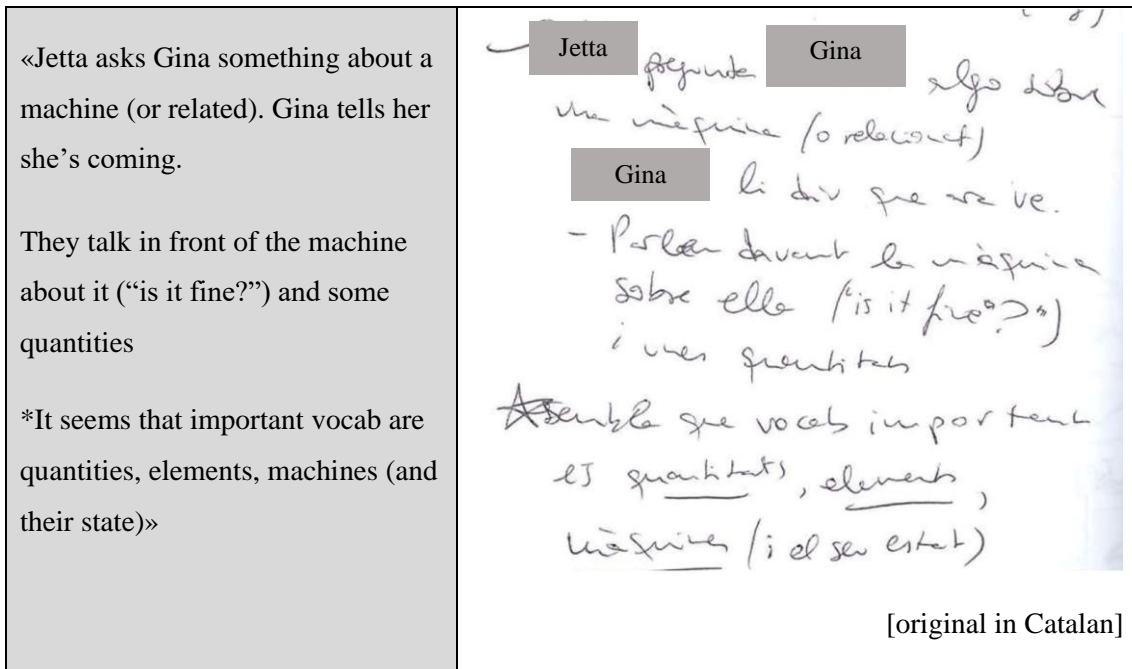 «Jetta asks Gina something about a
machine (or related). Gina tells her
she’s coming.
They talk in front of the machine
about it (“is it fine?”) and some
quantities
*It seems that important vocab are
quantities, elements, machines (and
their state)»
Jetta pregunta Gina algo sobre
una màquina (o relacionat)
Gina li diu que ara ve.
- Parlen davant la màquina
sobre ella ("is it fine?")
i unes quantitats
*Sembla que vocab important
és quantitats, elements,
màquines (i el seu estat)
[original in Catalan]